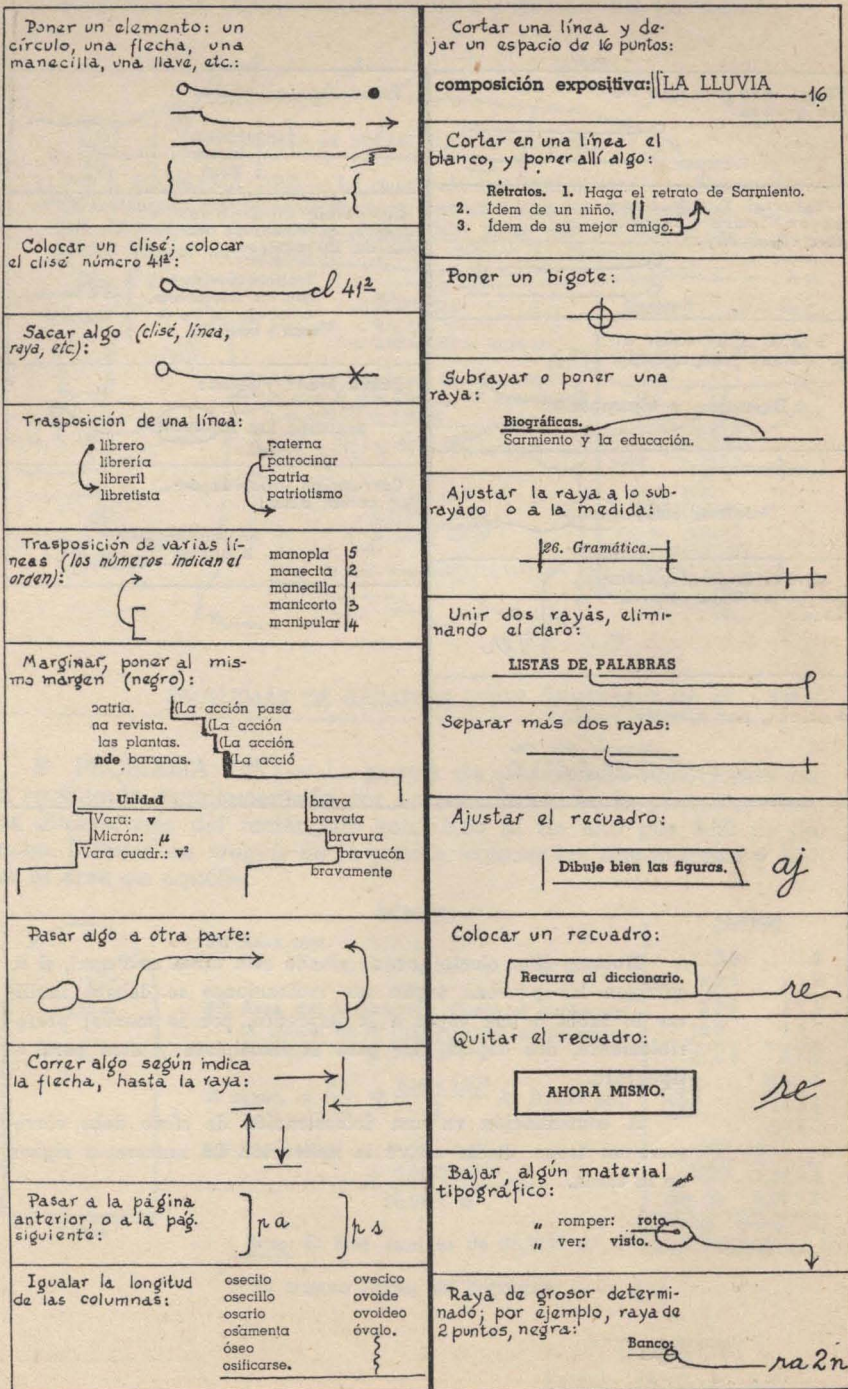 Poner un elemento: un
círculo, una flecha, una
manecilla, una llave, etc.:
Colocar un clisé; colocar
el clisé número 41²:
cl 41²
Sacar algo (clisé, línea,
raya, etc):
Trasposición de una línea:
librero
librería
libreril
libretista
paterna
patrocinar
patria
patriotismo
Trasposición de varias lí-
neas (los números indican el
orden):
manopla 5
manecita 2
manecilla 1
manicorto 3
manipular 4
Marginar, poner al mis-
mo margen (negro):
patria. (La acción pasa
na revista. (La acción
las plantas. (La acción
nde bananas. (La acció
Unidad
Vara: v
Micrón: μ
Vara cuadr.: v²
brava
bravata
bravura
bravucón
bravamente
Pasar algo a otra parte:
Correr algo según indica
la flecha, hasta la raya:
Pasar a la página
anterior, o a la pág.
siguiente:
p a
p s
Igualar la longitud
de las columnas:
osecito
osecillo
osario
osamenta
óseo
osificarse.
ovecico
ovoide
ovoideo
óvalo.
Cortar una línea y de-
jar un espacio de 16 puntos:
composición expositiva: LA LLUVIA 16
Cortar en una línea el
blanco, y poner allí algo:
Retratos. 1. Haga el retrato de Sarmiento.
2. Ídem de un niño.
3. Ídem de su mejor amigo.
Poner un bigote:
Subrayar o poner una
raya:
Biográficas.
Sarmiento y la educación.
Ajustar la raya a lo sub-
rayado o a la medida:
26. Gramática.—
Unir dos rayas, elimi-
nando el claro:
LISTAS DE PALABRAS
Separar más dos rayas:
Ajustar el recuadro:
Dibuje bien las figuras. aj
Colocar un recuadro:
Recurra al diccionario. re
Quitar el recuadro:
AHORA MISMO. re
Bajar, algún material
tipográfico:
„ romper: roto.
„ ver: visto.
Raya de grosor determi-
nado; por ejemplo, raya de
2 puntos, negra:
Banco: ra 2n